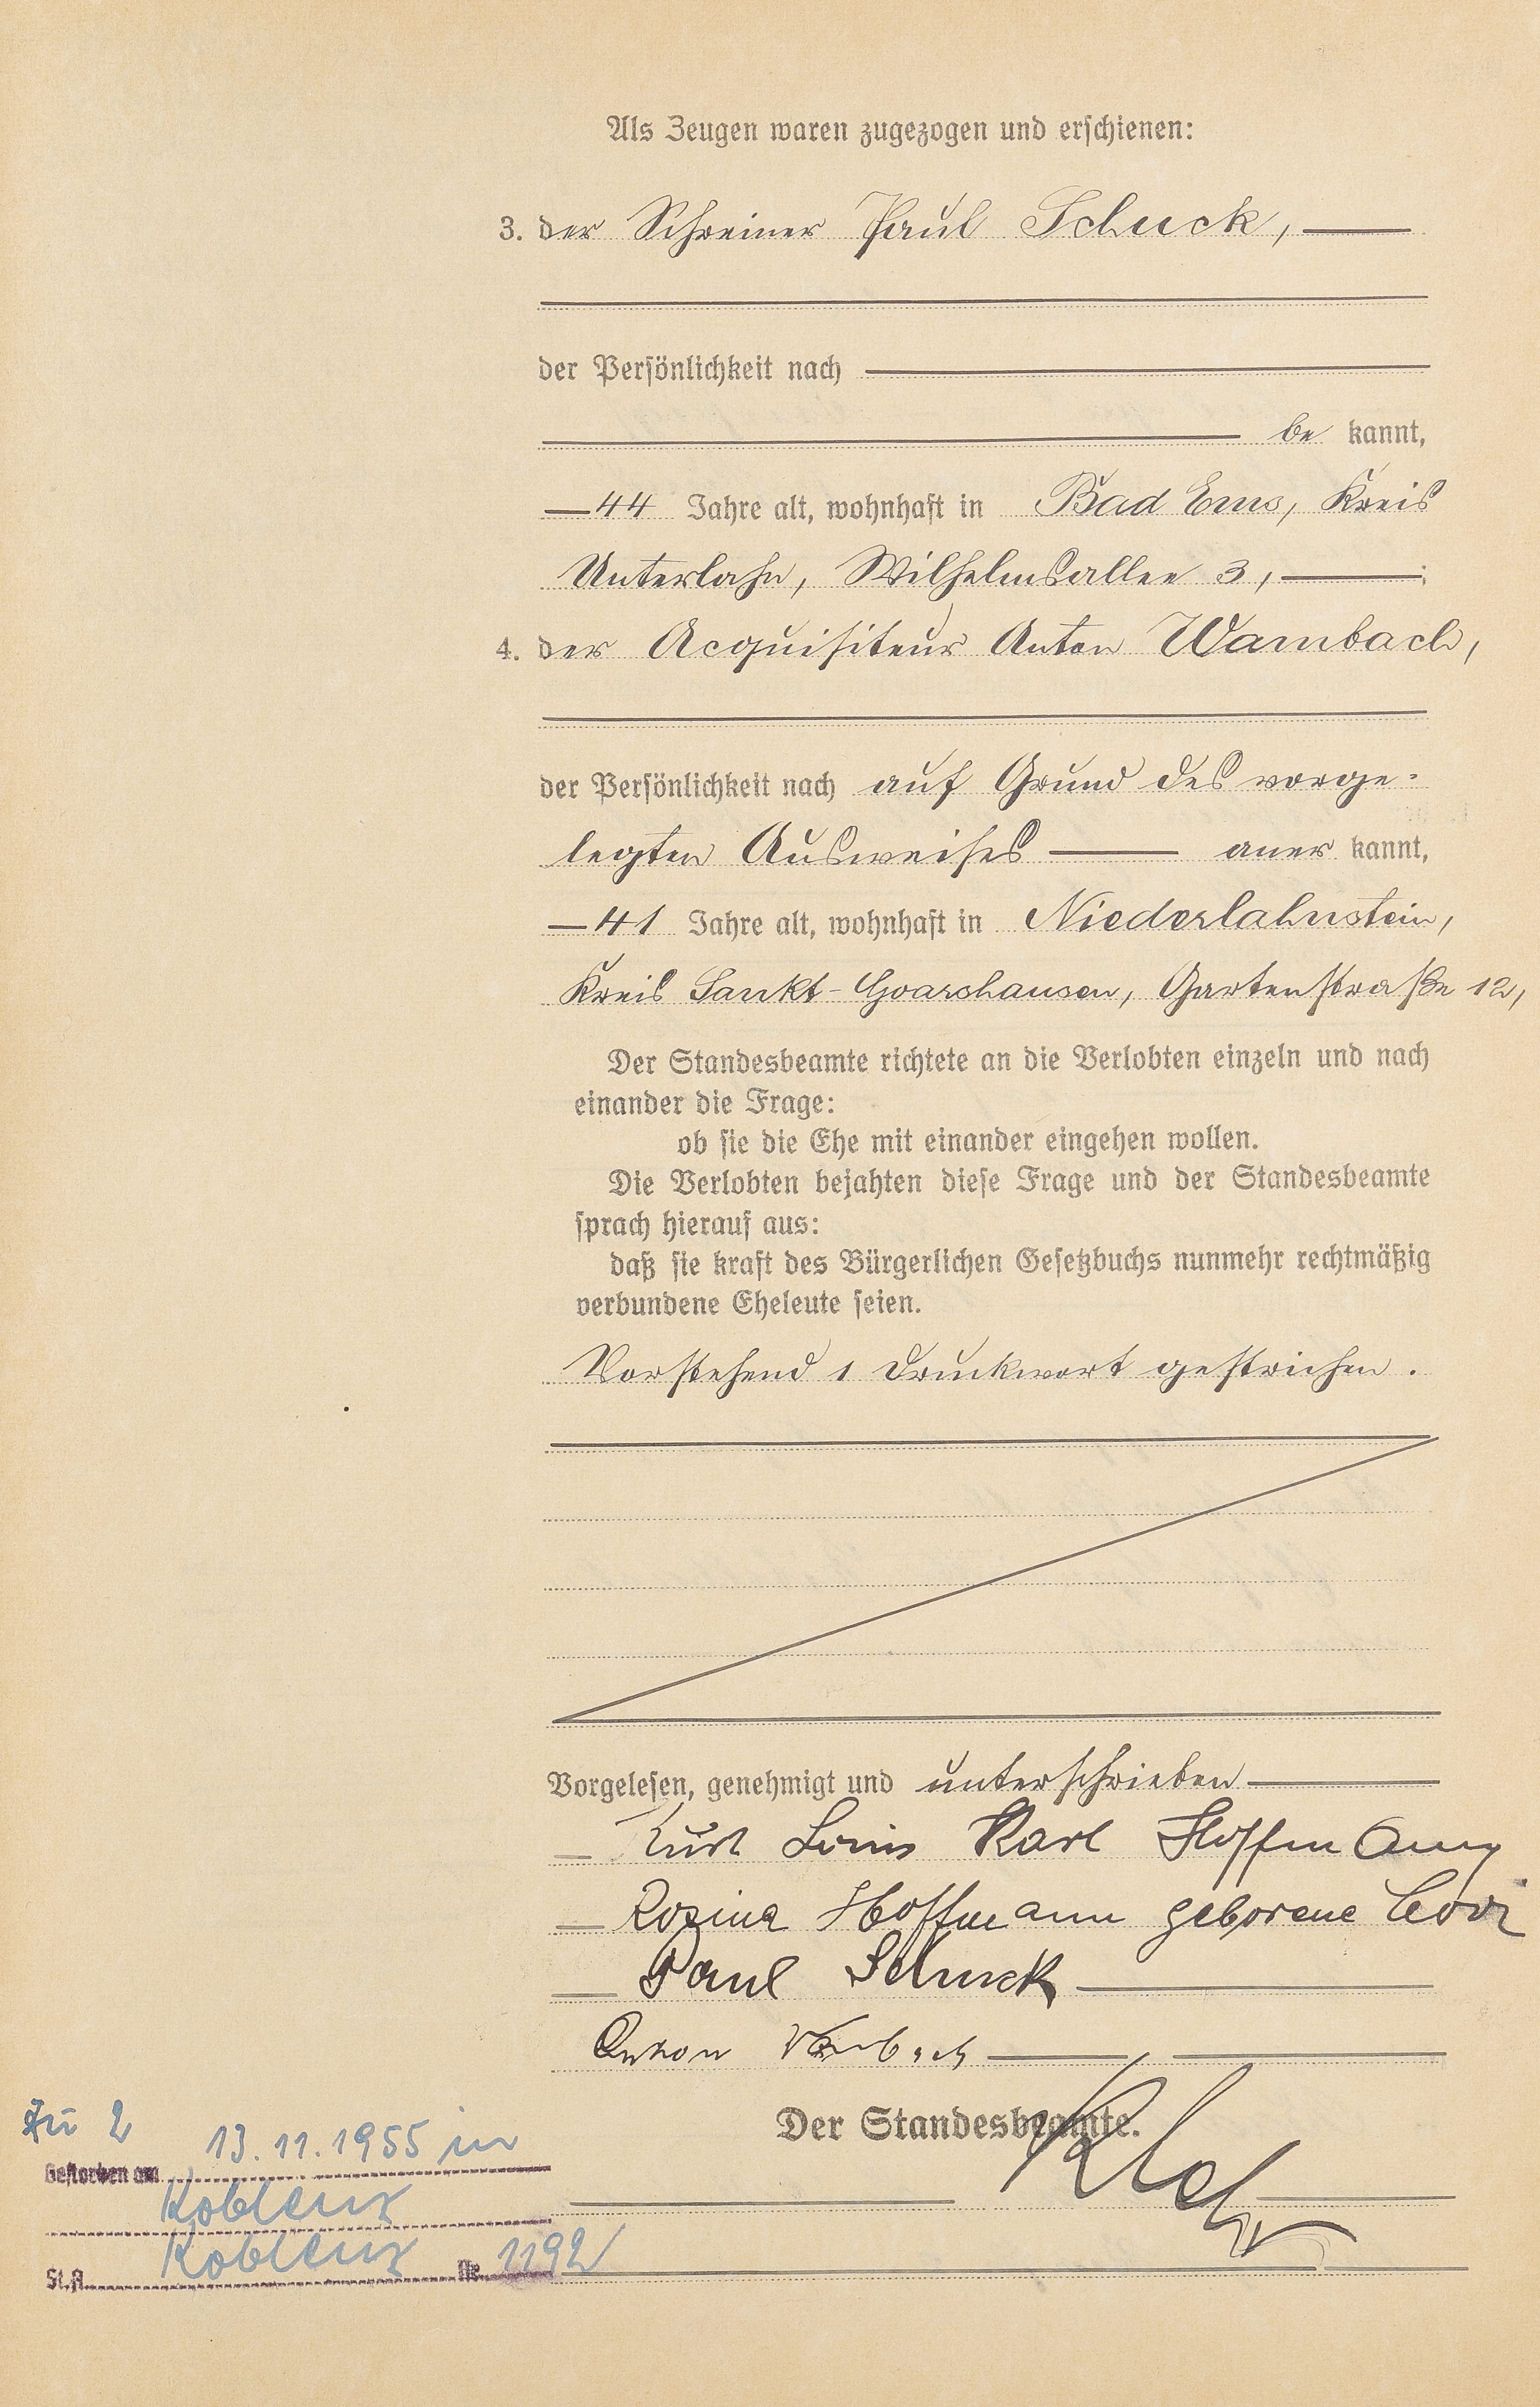 Als Zeugen waren zugezogen und erschienen:
3. der Schreiner Paul Schuck,
der Persönlichkeit nach
be kannt,
44 Jahre alt, wohnhaft in Bad Ems, Kreis
Unterlahn, Wilhelmsallee 3,
4. der Acquisiteur Anton Wambach,
der Persönlichkeit nach auf Grund des vorge-
legten Ausweises aner kannt,
41 Jahre alt, wohnhaft in Niederlahnstein,
Kreis Sankt-Goarshausen, Gartenstraße 12,
Der Standesbeamte richtete an die Verlobten einzeln und nach
einander die Frage:
ob sie die Ehe mit einander eingehen wollen.
Die Verlobten bejahten diese Frage und der Standesbeamte
sprach hierauf aus:
daß sie kraft des Bürgerlichen Gesetzbuchs nunmehr rechtmäßig
verbundene Eheleute seien.
Vorstehend 1 Druckwort gestrichen.
Vorgelesen, genehmigt und unterschrieben
Kurt Louis Karl Hoffmann
Rosina Hoffmann geborene
Paul Schuck
Anton Wambach
Der Standesbeamte.
Zu 2
Gestorben am 13.11.1955 in
Koblenz
St.A. Koblenz Nr. 1192